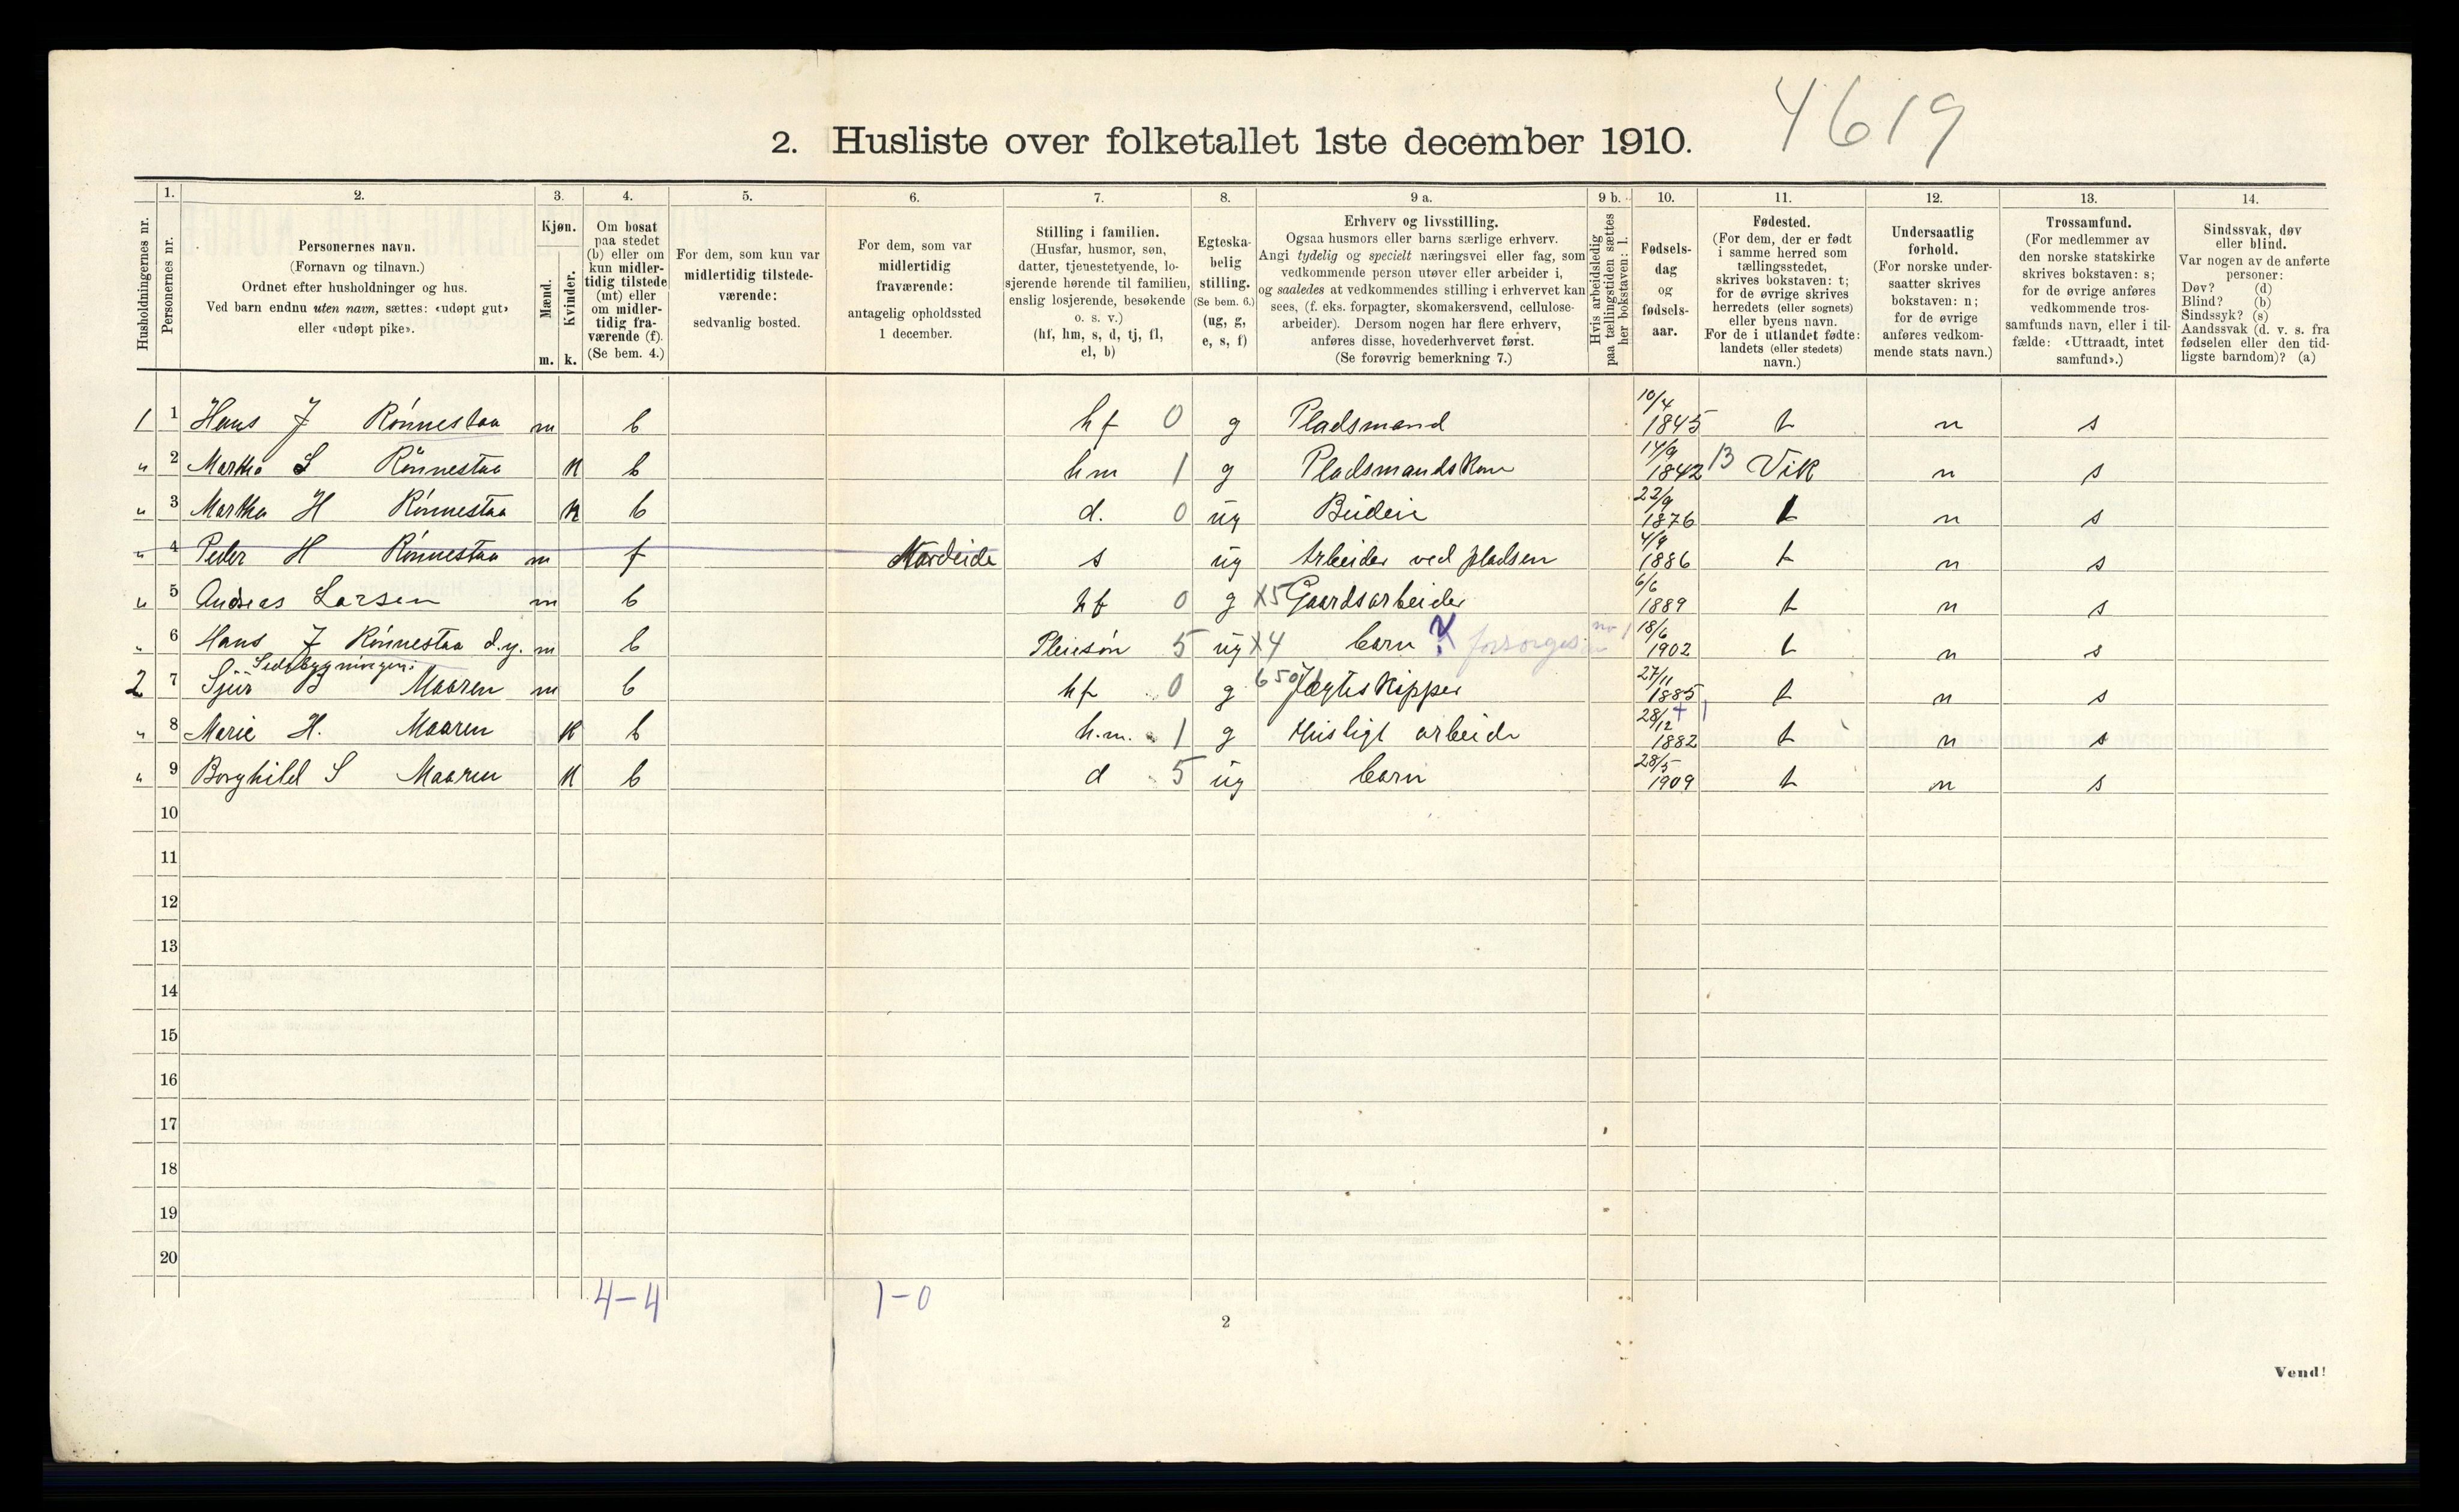 4619
2. Husliste over folketallet 1ste december 1910.
Husholdningernes nr.
1.
Personernes nr.
2.
Personernes navn.
(Fornavn og tilnavn.)
Ordnet efter husholdninger og hus.
Ved barn endnu uten navn, sættes: «udøpt gut»
eller «udøpt pike».
3.
Kjøn.
Mænd.
m.
Kvinder.
k.
4.
Om bosat
paa stedet
(b) eller om
kun midler-
tidig tilstede
(mt) eller
om midler-
tidig fra-
værende (f).
(Se bem. 4.)
5.
For dem, som kun var
midlertidig tilstede-
værende:
sedvanlig bosted.
6.
For dem, som var
midlertidig
fraværende:
antagelig opholdssted
1 december.
7.
Stilling i familien.
(Husfar, husmor, søn,
datter, tjenestetyende, lo-
sjerende hørende til familien,
enslig losjerende, besøkende
o. s. v.)
(hf, hm, s, d, tj, fl,
el, b)
8.
Egteska-
belig
stilling.
(Se bem. 6.)
(ug, g,
e, s, f)
9 a.
Erhverv og livsstilling.
Ogsaa husmors eller barns særlige erhverv.
Angi tydelig og specielt næringsvei eller fag, som
vedkommende person utøver eller arbeider i,
og saaledes at vedkommendes stilling i erhvervet kan
sees, (f. eks. forpagter, skomakersvend, cellulose-
arbeider). Dersom nogen har flere erhverv,
anføres disse, hovederhvervet først.
(Se forøvrig bemerkning 7.)
9 b.
Hvis arbeidsledig
paa tællingstiden sættes
her bokstaven: l.
10.
Fødsels-
dag
og
fødsels-
aar.
11.
Fødested.
(For dem, der er født
i samme herred som
tællingsstedet,
skrives bokstaven: t;
for de øvrige skrives
herredets (eller sognets)
eller byens navn.
For de i utlandet fødte:
landets (eller stedets)
navn.)
12.
Undersaatlig
forhold.
(For norske under-
saatter skrives
bokstaven: n;
for de øvrige
anføres vedkom-
mende stats navn.)
13.
Trossamfund.
(For medlemmer av
den norske statskirke
skrives bokstaven: s;
for de øvrige anføres
vedkommende tros-
samfunds navn, eller i til-
fælde: «Uttraadt, intet
samfund».)
14.
Sindssvak, døv
eller blind.
Var nogen av de anførte
personer:
Døv? (d)
Blind? (b)
Sindssyk? (s)
Aandssvak (d. v. s. fra
fødselen eller den tid-
ligste barndom)? (a)
1 1 Hans J Rønnestaa m b hf 0 g Pladsmand 10/4 1845 t n s
" 2 Martha S Rønnestaa k b hm 1 g Pladsmandskone 14/9 1842 13 Vik n s
" 3 Martha H Rønnestaa k b d. 0 ug Budeie 22/9 1876 t n s
" 4 Peder H Rønnestaa m f Nordeide s ug Arbeider ved pladsen 4/9 1886 t n s
" 5 Andreas Larsen m b hf 0 g X5 Gaardsarbeider 6/6 1889 t n s
" 6 Hans J Rønnestaa d.y. m b Pleiesøn 5 ug X4 barn forsørges no 1 18/6 1902 t n s
Sidebygningen:
2 7 Sjur B Maaren m b hf 0 g 6501 Jægtskipper 27/11 1885 t n s
" 8 Marie H. Maaren k b h.m. 1 g Husligt arbeide 28/12 1882 t n s
" 9 Borghild S Maaren k b d 5 ug barn 28/5 1909 t n s
10
11
12
13
14
15
16
17
18
19
20
4-4 1-0
2
Vend!